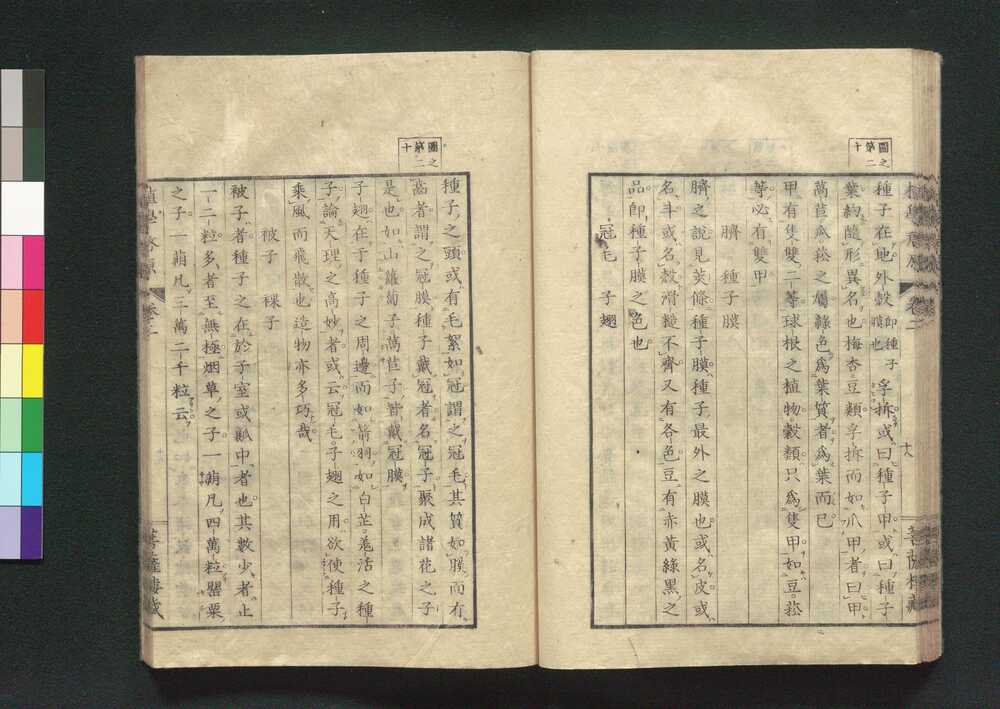 圖之
第二
十
種子在地外殼即種子膜也孚拆或曰種子甲或曰種子
葉約隨形異名也梅杏豆類孚拆而如爪甲者曰甲
萵苣瓜菘之屬綠色為葉質者為葉而已
甲有隻雙二等球根之植物穀類只為隻甲如豆菘
等必有雙甲
臍 種子膜
臍之說見莢條種子膜種子最外之膜也或名皮或
名斗或名殼滑糙不齊又有各色豆有赤黃綠黑之
品即種子膜之色也
冠毛 子翅
十八
圖之
第二
十
種子之頭或有毛絮如冠謂之冠毛其質如膜而有
齒者謂之冠膜種子戴冠者名冠子聚成諸花之子
是也如山蘿蔔子萵苣子皆戴冠膜
子翅在于種子之周邊而如箭羽如白芷羌活之種
子論天理之高妙者或云冠毛子翅之用欲使種子
乘風而飛散也造物亦多巧哉
被子 稞子
被子者種子之在於子室或瓤中者也其數少者止
一二粒多者至無極烟草之子一萌凡四萬粒罌粟
之子一萌凡三萬二千粒云